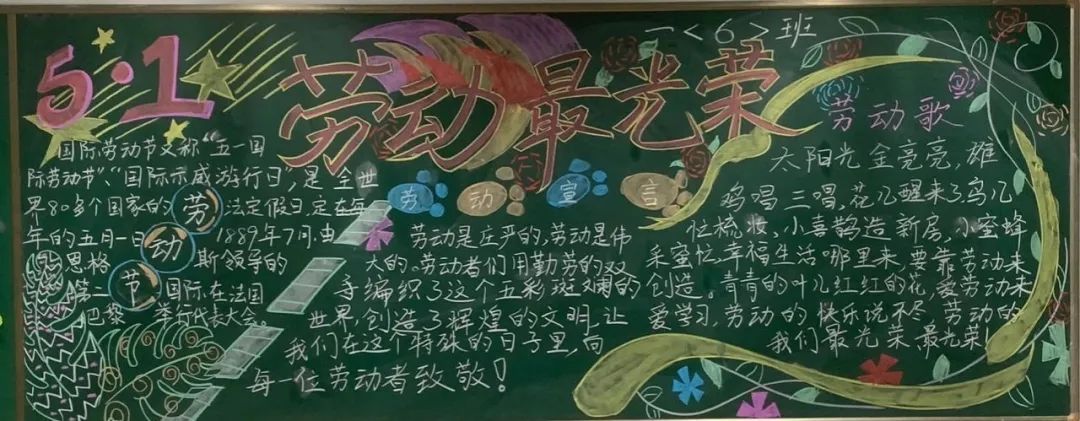 5·1
劳动最光荣
一<6>班
国际劳动节又称“五一国
际劳动节”、“国际示威游行日”,是全世
界80多个国家的法定假日,定在每
年的五月一日 1889年7月,由
恩格斯领导的
第二国际在法国
巴黎举行代表大会
劳动节
劳动宣言
劳动是庄严的,劳动是伟
大的。劳动者们用勤劳的双
手编织了这个五彩斑斓的
世界,创造了辉煌的文明,让
我们在这个特殊的日子里,向
每一位劳动者致敬!
劳动歌
太阳光金亮亮,雄
鸡唱三唱,花儿醒来了鸟儿
忙梳妆、小喜鹊造新房,小蜜蜂
采蜜忙,幸福生活哪里来,要靠劳动来
创造。青青的叶儿红红的花,爱劳动来
爱学习,劳动的快乐说不尽 劳动的
我们最光荣 最光荣!